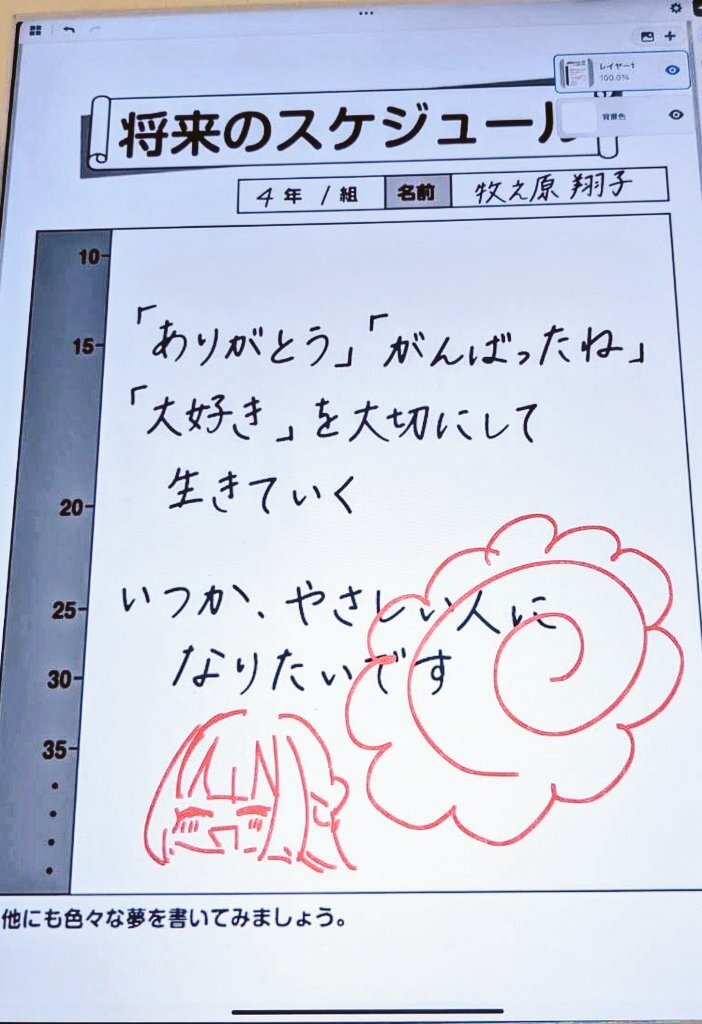 レイヤー1
100.0%
背景色
将来のスケジュール
4年1組 名前 牧之原 翔子
10
15
20
25
30
35
「ありがとう」「がんばったね」
「大好き」を大切にして
生きていく
いつか、やさしい人に
なりたいです
他にも色々な夢を書いてみましょう。